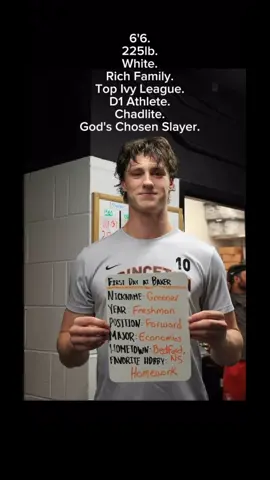 6'6.
225lb.
White.
Rich Family.
Top Ivy League.
D1 Athlete.
Chadlite.
God's Chosen Slayer.
PRINCET
10
FIRST DAY AT BAKER
NICKNAME: Greener
YEAR: Freshman
POSITION: Forward
MAJOR: Economics
HOMETOWN: Bedford, NS
FAVORITE HOBBY:
Homework